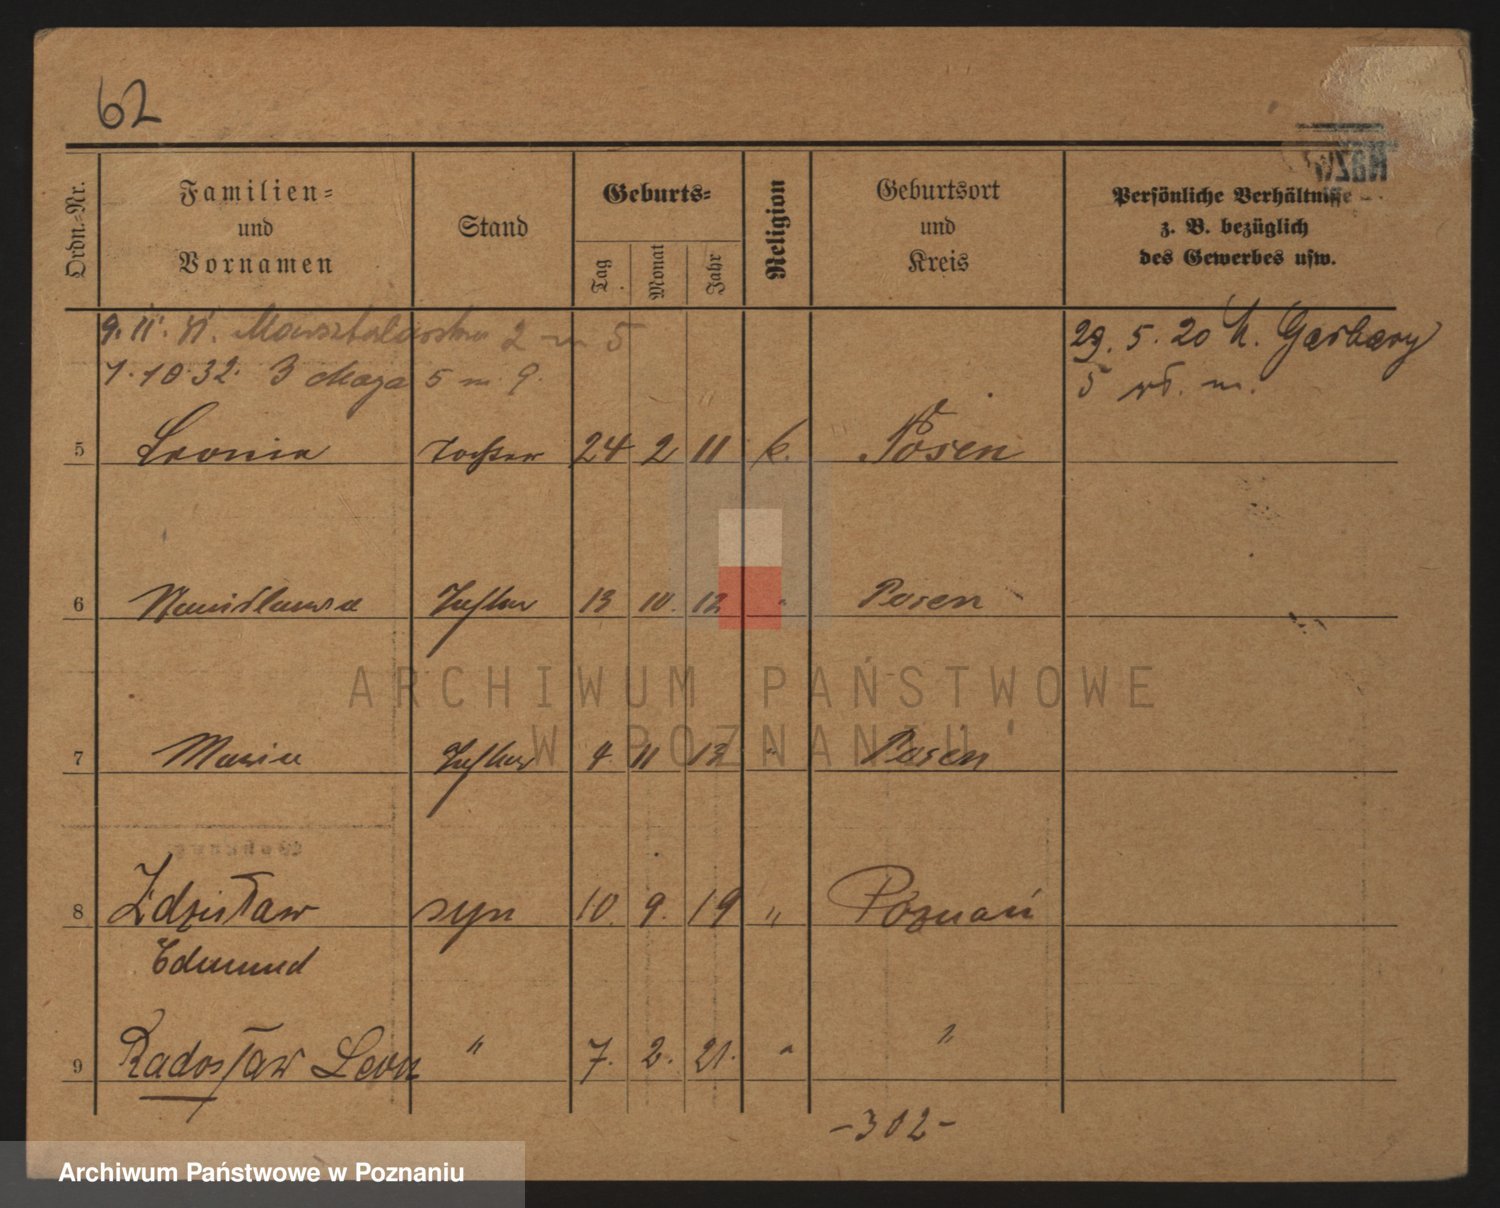 62
Ordn.-Nr.
Familien-
und
Vornamen
Stand
Geburts-
Tag
Monat
Jahr
Religion
Geburtsort
und
Kreis
Persönliche Verhältnisse
z. B. bezüglich
des Gewerbes usw.
9. 11. 2 m 5
29. 5. 20 Garbary
1. 10. 32. 3 Maja 5 m. 9.
5 m.
5 Leonia Tochter 24 2 11 k. Posen
6 Stanislawa Tochter 13 10. 12 " Posen
7 Maria Tochter 4 11 13 " Posen
8 Zdzisław syn 10. 9. 19 " Poznań
Edmund
9 Radosław Leon " 7. 2. 21. " "
-302-
ARCHIWUM PAŃSTWOWE
W POZNANIU
Archiwum Państwowe w Poznaniu